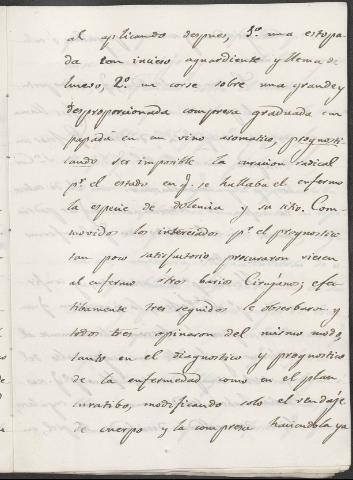 al aplicando despues, 1.º una estopa-
da con incieso aguardiente y llema de
huevo, 2.º un corse sobre una grande y
desproporcionada compresa graduada em
papada en un vino aromatico, prognosti-
cando ser imposible la curacion radical
p.r el estado en q. se hallaba el enfermo
la especie de dolencia y su sitio. Con-
movidos los interesados p.r el prognostico
tan poco satisfactorio procuraron viesen
al enfermo otros barios Cirujanos; efec-
tibamente tres seguidos le obserbaron y
todos tres opinaron del mismo modo,
tanto en el diagnostico y prognostico
de la enfermedad como en el plan
curatibo, modificando solo el vendaje
de cuerpo y la compresa haciendola ya